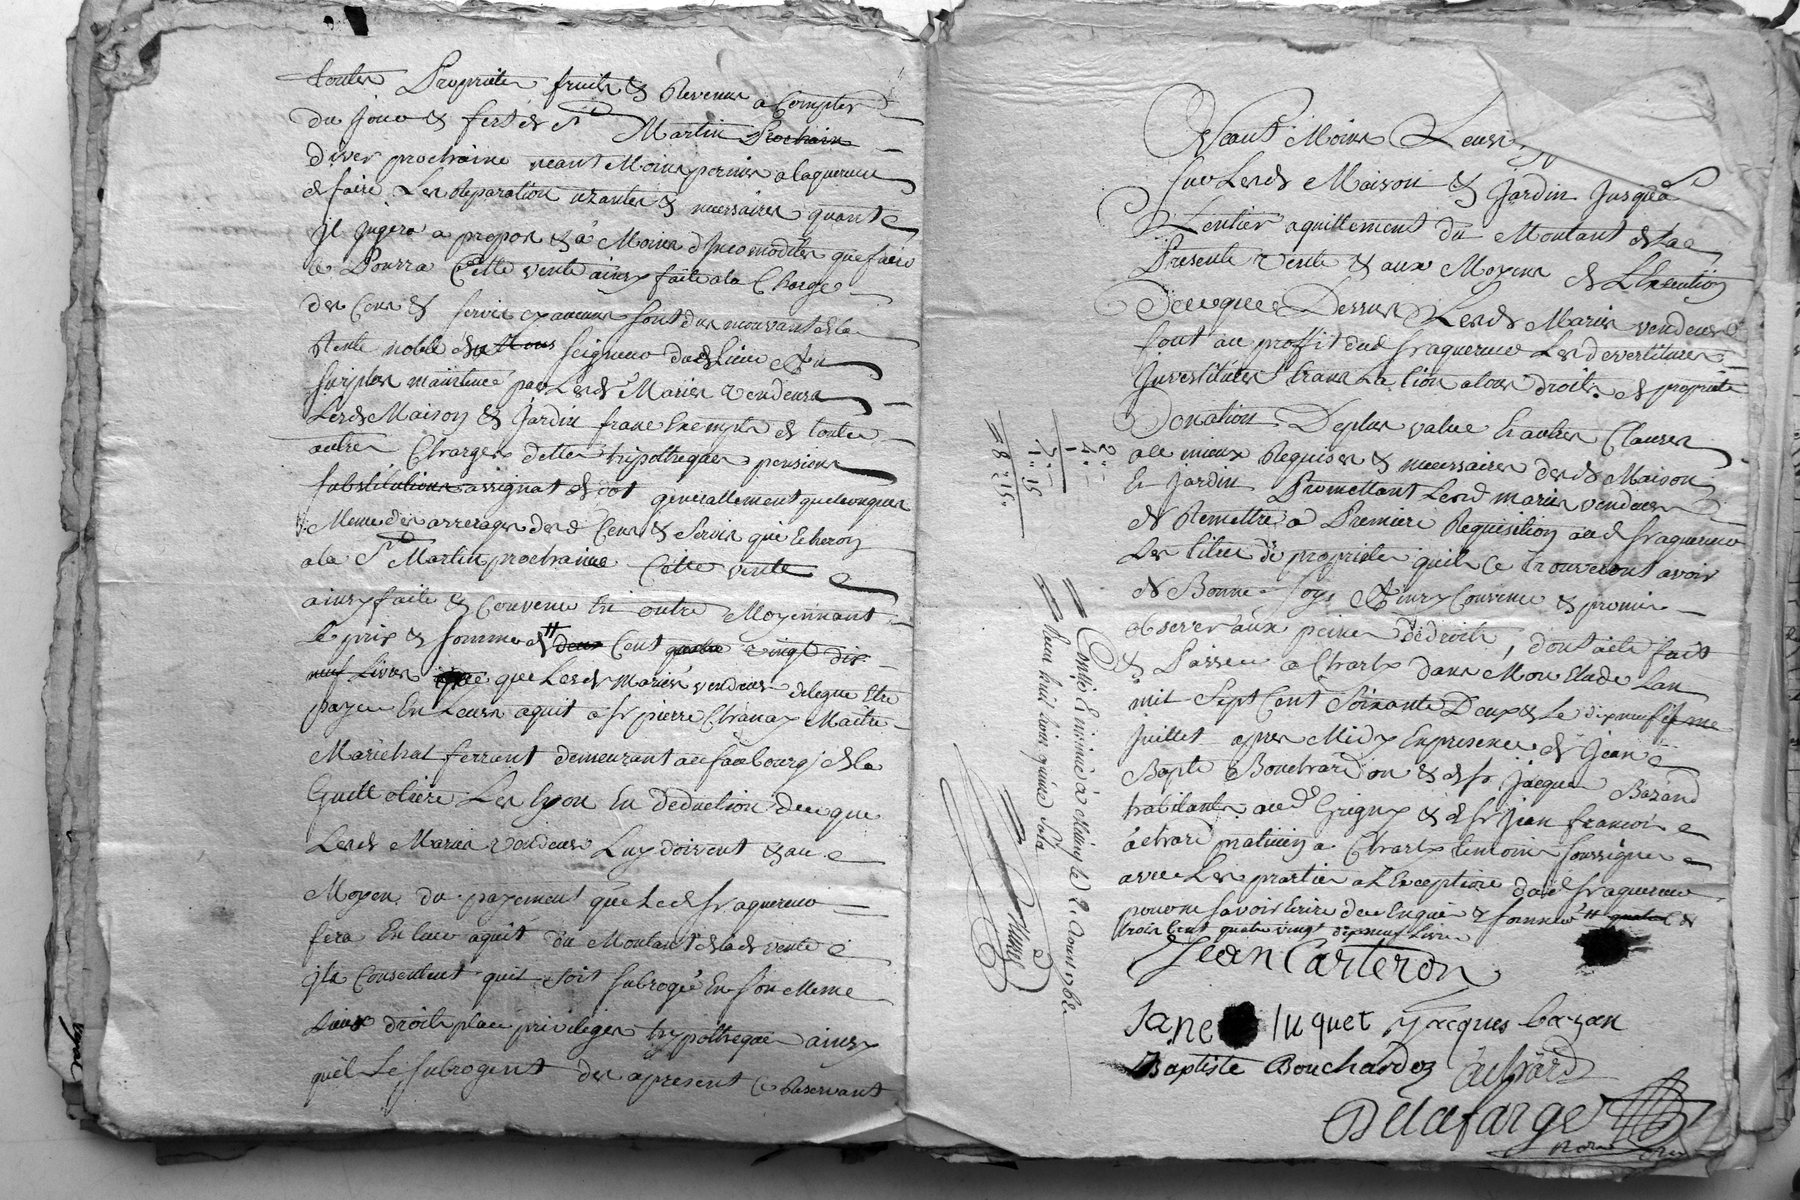 toutes Proprietes fruits & Revenus a Compter
du jour & feste de St Martin Prochain
diver prochaine neant Moins permis alaquereur
de faire Les Reparations uzantes & necessaires quant
Il jugera a propos & a Moins d'Incomodites que faire
le Pourra Cette vente ainsy faite ala Charge
des Cens & servis ayauenus sont dus mouvant de la
Rente noble seigneur dud Lieu
surplus maintenue par Lesd Mariés vendeurs
Lesd Maison & Jardin franc Exempts de toutes
autres Charges dettes hypotheques pensions
substitutions assignat de dot generallement quelconques
Meme des arrerages desd Cens & Servis qui Echeron
a la St Martin prochaine Cette vente
ainsy faite & Convenue En outre Moyennant
Le prix & somme de deux Cent quatre vingt dix
neuf Livres que Lesd mariés vendeurs delegue Etre
payer En Leurs aquit a sr pierre Chanay Maitre
Marechal ferrant demeurant au faubourg de la
Guillotiere Les Lyon En deduction de ce que
Lesd Mariés vendeurs Luy doivent & au
Moyen du payement que Led sr aquereur
fera En leur aquit du Montant de lad vente
Ils Consentent quil soit subrogé En son Meme
Lieux droits place privileges hypotheques ainsy
quil Le subrogent des apresent Ce Reservant
Neant Moins Leurs
sur Lesd Maison & Jardin Jusqua
L'entier aquittement du Montant de la
Presente vente & aux Moyens de L'Execution
De ce que Dessus Lesd Mariés vendeurs
font au proffit dud sr aquereur Les devestitures
Investitures translation alors droits de propriété
Donation De plus value & autres Clauses
ale mieux Requises & necessaires desd Maison
Et Jardin Promettant Lesd mariés vendeurs
de Remettre a Premiere Requisition aud sr aquereur
Les titres de proprietes quils Ce trouveront avoir
de Bonne foys Ainsy Convenu & promis
observer aux peines de droits, dont acte fait
& Passée a Charly dans Mon Etude Lan
mil Sept Cent Soixante Deux & Le dixneufieme
Juillet apres Midy En presence de Jean
Bapte Bouchardon & de sr Jacques Bazand
habitants aud Grigny & de sr Jean francois
achard praticien a Charly temoins soussignes
avec Les parties a L'Exception dud sr aquereur
pouvoir savoir Ecrire de ce Enquis & sommé
trois Cent quatre vingt dixneuf Livres
Jean Carteron
Jane luquet Jacques bazan
Baptiste Bouchardon achard
Delafarge
2 "
4 "
7 " 15
1 "
8 " 15
Controlle Insinué à Millery le 2. Aoust 1762
Reçu huit Livres quinze Sols